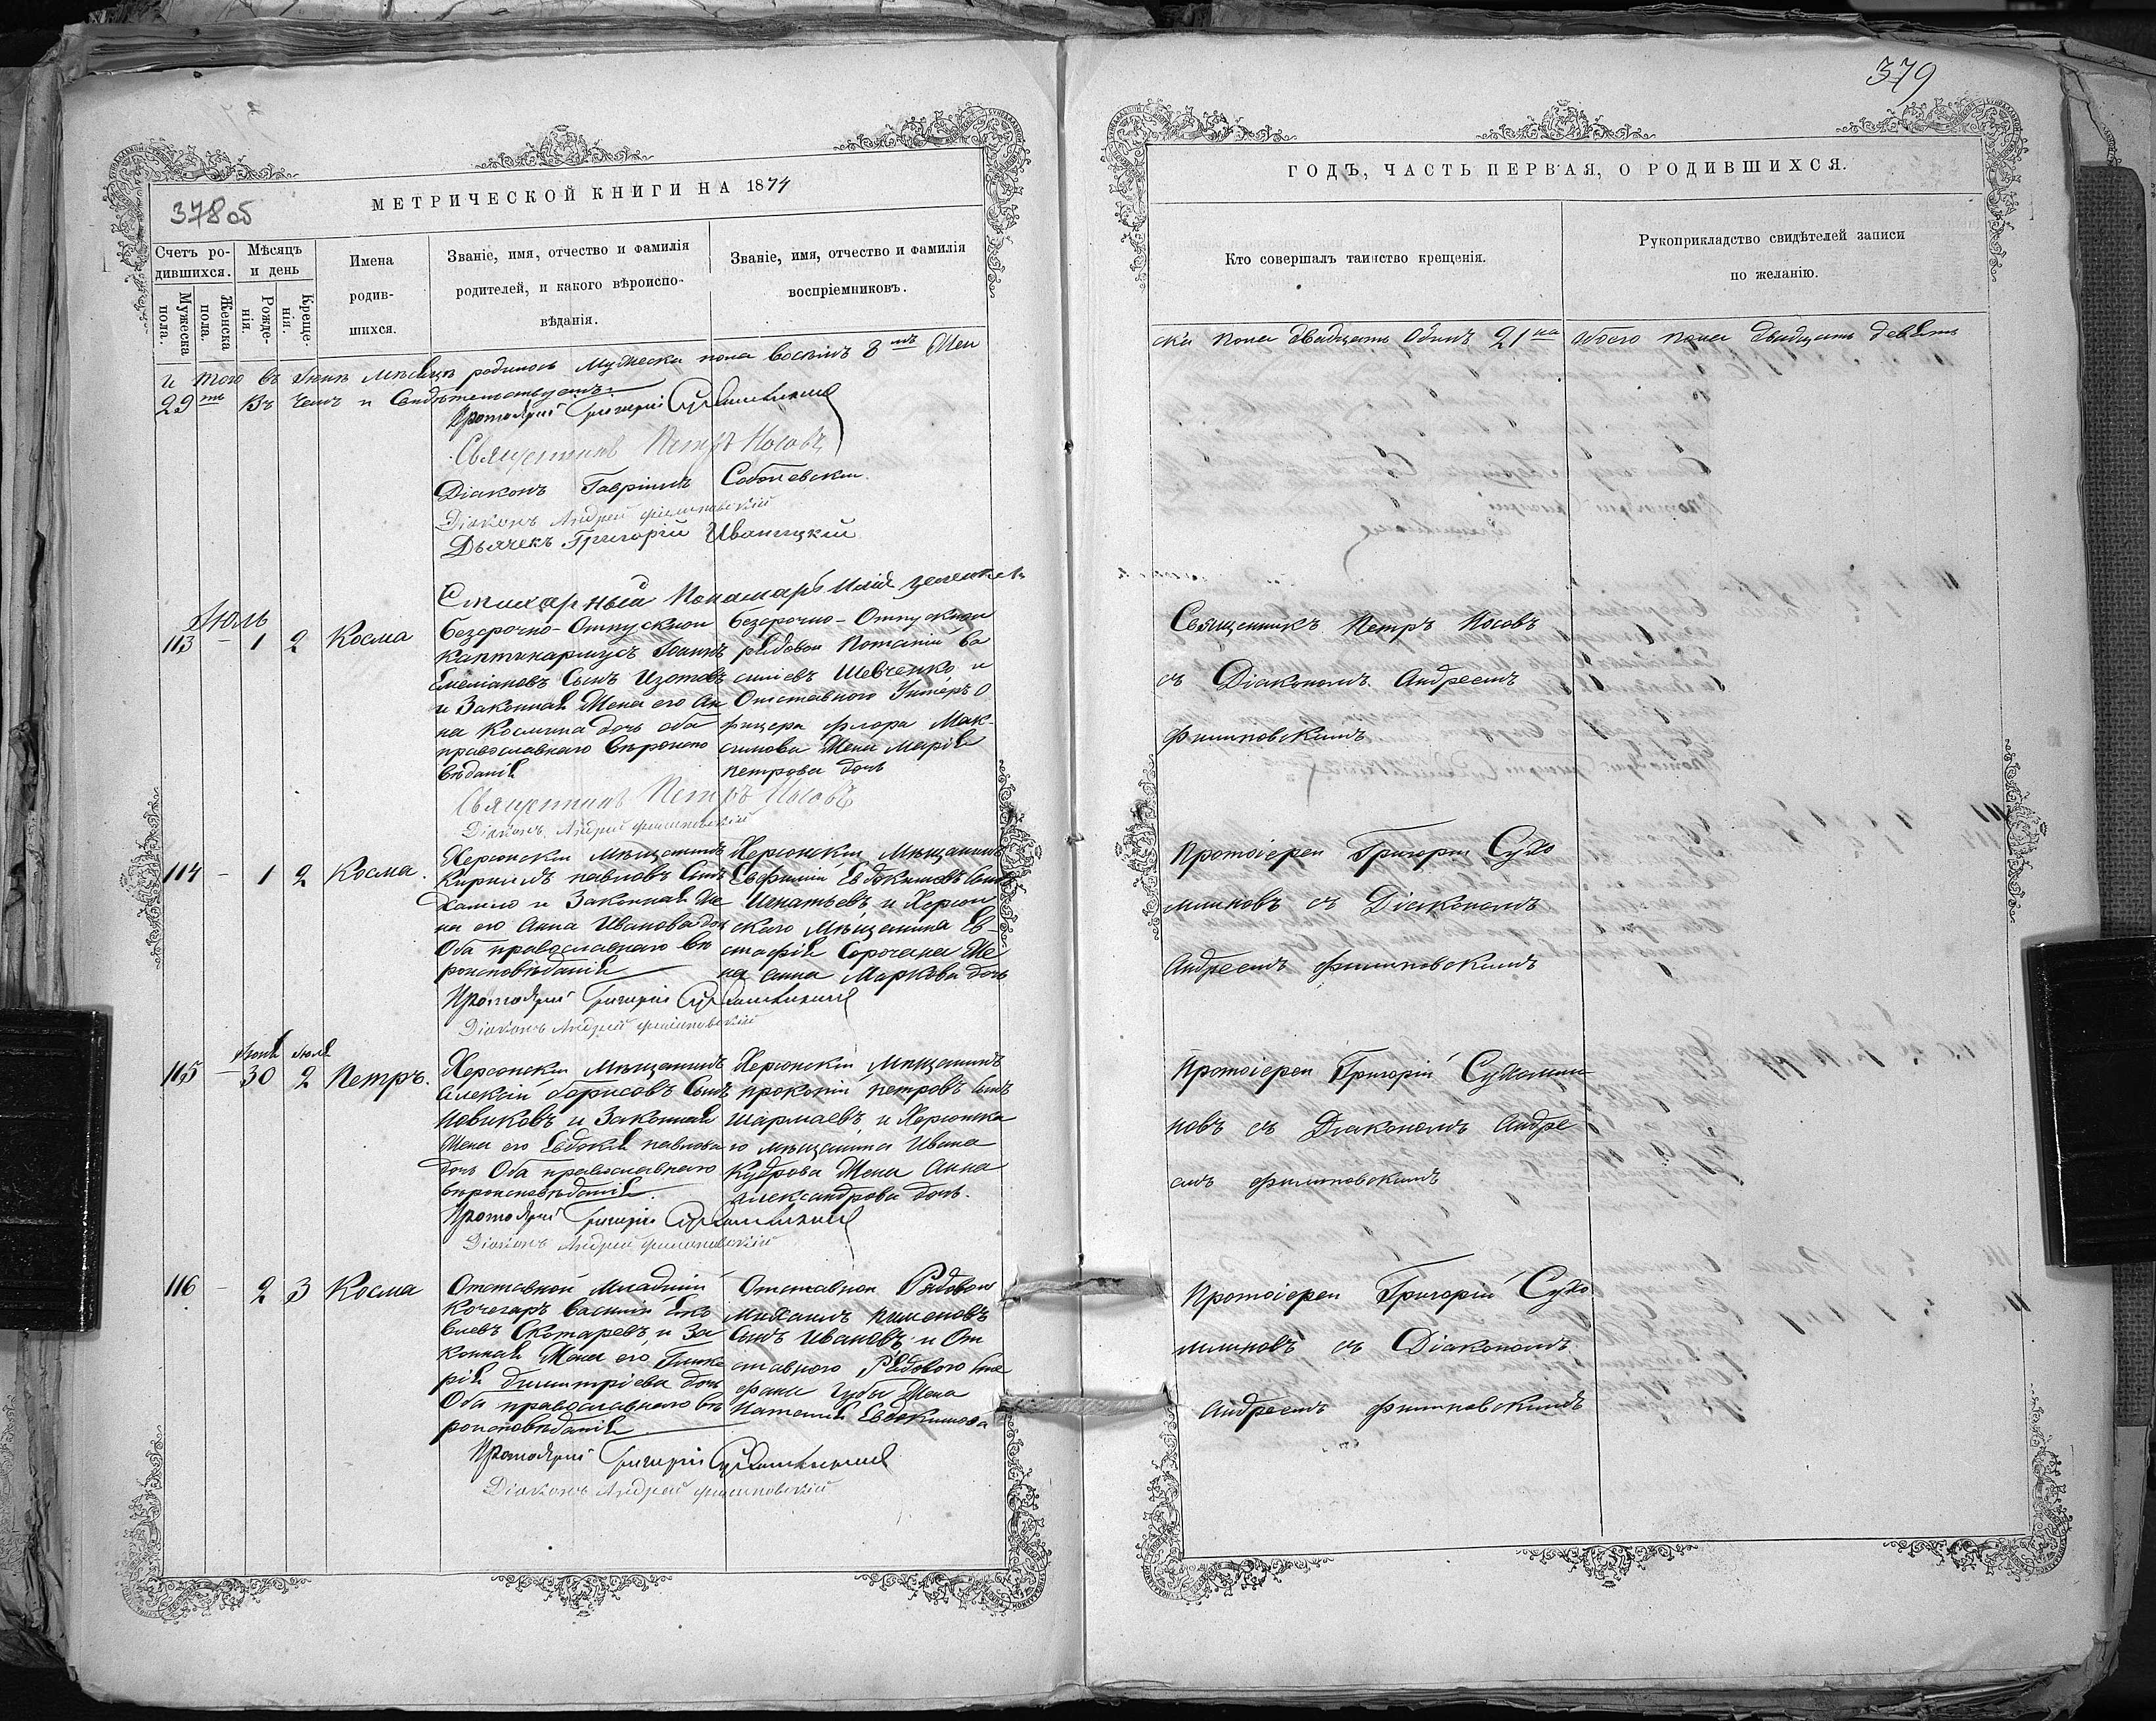 379
МЕТРИЧЕСКОЙ КНИГИ НА 1874
378 об
Счетъ ро-
дившихся.
Мужеска
пола.
Женска
пола.
Мѣсяцъ
и день
Рожде-
нія.
Креще-
нія.
Имена
родив-
шихся.
Званіе, имя, отчество и фамилія
родителей, и какого вѣроиспо-
вѣданія.
Званіе, имя, отчество и фамилія
воспріемниковъ.
И того въ Іюнѣ мѣсяцѣ родилось Мужеска пола восемь 8мь Жен
29ть Въ чемъ и Свидѣтельствуемъ:
Протоіерей Григорій Сухомлиновъ
Священникъ Петръ Носовъ
Діаконъ Гавріилъ
Діаконъ Андрей Филиповскій
Дьячекъ Григорій Иваницкій
Стихарный Пономарь Илія
Іюль
113 – 1 2 Косма
безсрочно-Отпускной
каптинармусъ Іоаннъ
Емеліановъ Сынъ Изотовъ
и Законная Жена его Ан
на Космина дочь оба
православнаго вѣроиспо
вѣданія
безсрочно-Отпускной
рядовой Потапій Ва
силіевъ Шевченко и
Отставного Унтеръ О
фицера Флора Мак-
симова Жена Марія
петрова дочь
Священникъ Петръ Носовъ
Діаконъ Андрей Филиповскій
114 – 1 2 Косма.
Херсонскій Мѣщанинъ
Кириллъ павловъ Сынъ
и Законная Же
на его Анна Иванова дочь
Оба православнаго вѣ
роисповѣданія
Херсонскій Мѣщанинъ
Евфимій Евдокимовъ Сынъ
Игнатьевъ и Херсон
скаго Мѣщанина Ев-
стафія Сорочана Же
на Анна Маркова дочь
Протоіерей Григорій Сухомлиновъ
Діаконъ Андрей Филиповскій
Іюня Іюля
115 – 30 2 Петръ.
Херсонскій Мѣщанинъ
Алексій борисовъ Сынъ
Новиковъ и Законная
Жена его Евдокія павлова
дочь Оба православнаго
вѣроисповѣданія.
Херсонскій Мѣщанинъ
прокопій петровъ Сынъ
и Херсонска
го мѣщанина Ивана
Кудрова Жена Анна
Александрова дочь.
Протоіерей Григорій Сухомлиновъ
Діаконъ Андрей Филиповскій
116 – 2 3 Косма
Отставной Младшій
Кочегаръ Василій
Скотаревъ и За
конная Жена его Глике
рія димитріева дочь
Оба православнаго вѣ
роисповѣданія
Отставной Рядовой
Михаилъ пименовъ
Сынъ Ивановъ и От
ставного Рядового Сте
фана Губы Жена
Наталія Евдокимова
Протоіерей Григорій Сухомлиновъ
Діаконъ Андрей Филиповскій
ГОДЪ, ЧАСТЬ ПЕРВАЯ, О РОДИВШИХСЯ.
Кто совершалъ таинство крещенія.
Рукоприкладство свидѣтелей записи
по желанію.
ска пола двадцать Одинъ 21на обоего пола двадцать девять
Священникъ Петръ Носовъ
съ Діакономъ Андреемъ
Филиповскимъ
Протоіерей Григорій Сухо
млиновъ съ Діакономъ
Андреемъ Филиповскимъ
Протоіерей Григорій Сухомли
новъ съ Діакономъ Андре
емъ Филиповскимъ
Протоіерей Григорій Сухо
млиновъ съ Діакономъ
Андреемъ Филиповскимъ